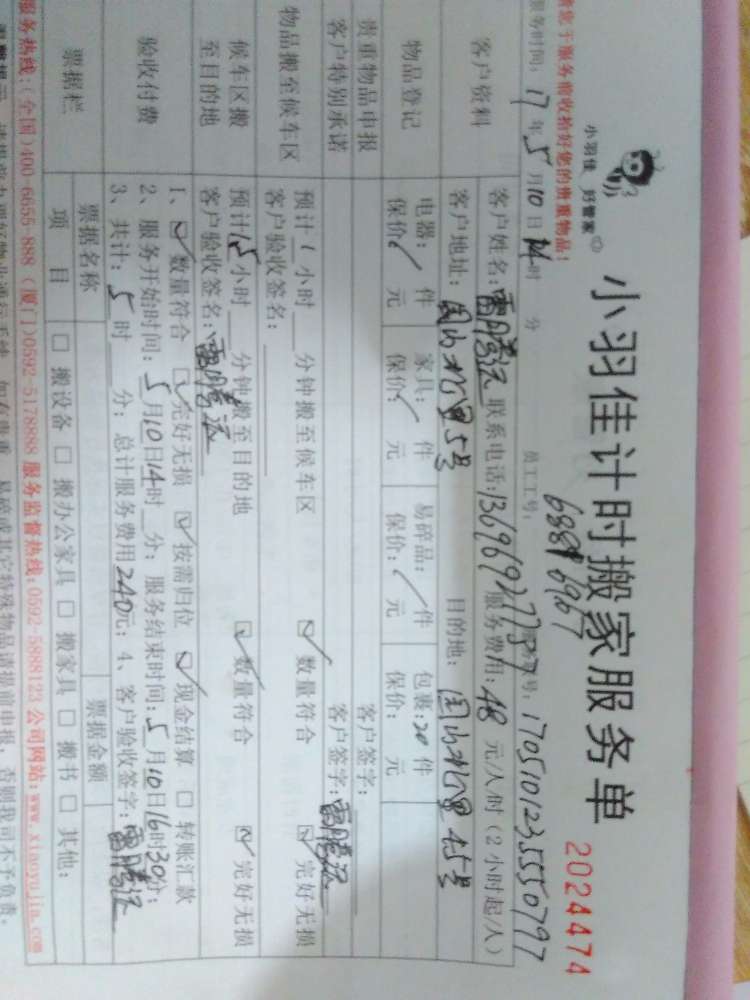 小羽佳 好管家
小羽佳计时搬家服务单
2024474
请您于服务前收拾好您的贵重物品!
服务时间: 17 年 5 月 10 日 14 时 分 员工工号: 6967 1705101235550797
客户资料
客户姓名: 联系电话: 13696927737 服务费用: 48 元/人/时 (2小时起/人)
客户地址: 5号 目的地: 45号
物品登记
电器: / 件 家具: / 件 易碎品: / 件 包裹: 20 件
保价: / 元 保价: / 元 保价: / 元 保价: 元
贵重物品申报 客户签字:
客户特别承诺 客户签字:
物品搬至候车区
预计 1 小时 分钟搬至候车区 ☑ 数量符合 ☑ 完好无损
客户验收签名:
候车区搬至目的地
预计 1.5 小时 分钟搬至目的地 ☑ 数量符合 ☑ 完好无损
客户验收签名:
验收付费
1、☑ 数量符合 ☑ 完好无损 ☑ 按需归位 ☑ 现金结算 □ 转账汇款
2、服务开始时间: 5 月 10 日 14 时 分; 服务结束时间: 5 月 10 日 16 时 30 分;
3、共计: 5 时 分; 总计服务费用 240 元; 4、客户验收签字:
票据栏 票据名称 票据金额
项 目 □ 搬设备 □ 搬办公家具 □ 搬家具 □ 搬书 □ 其他:
服务热线:(全国)400-6655-888 (厦门)0592-5178888 服务监督热线:0592-5888123 公司网站:www.xiaoyujia.com